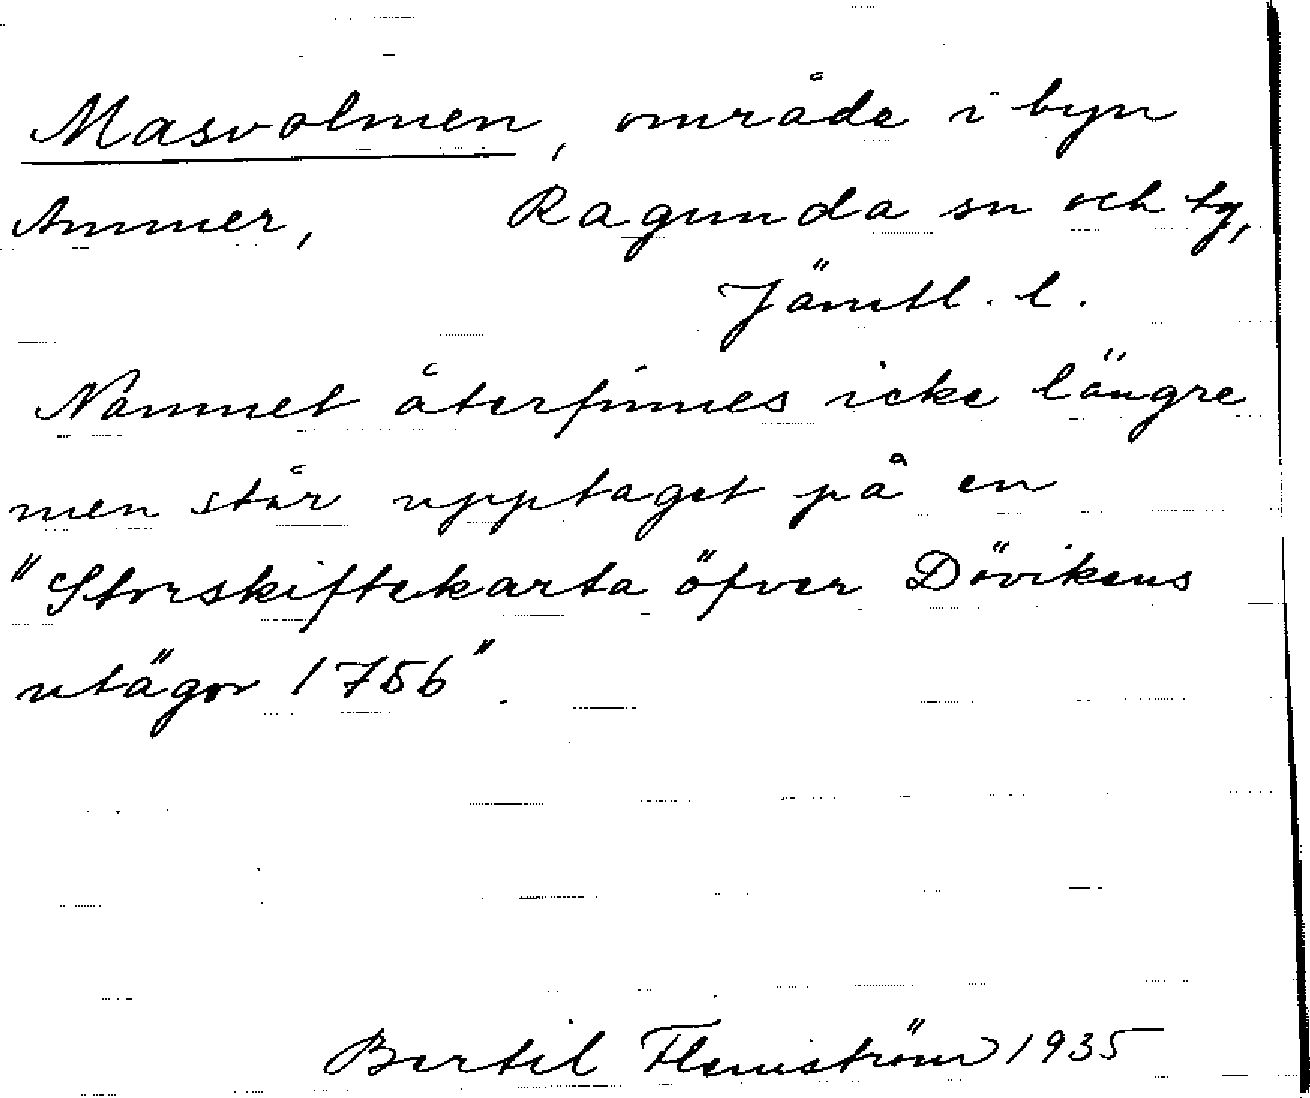 Masvolmen, område i byn
Ammer, Ragunda sn och tg,
Jämtl. l.
Namnet återfinnes icke längre
men står upptaget på en
"Storskiftekarta öfver Dövikens
utägor 1756".
Bertil Flemström 1935